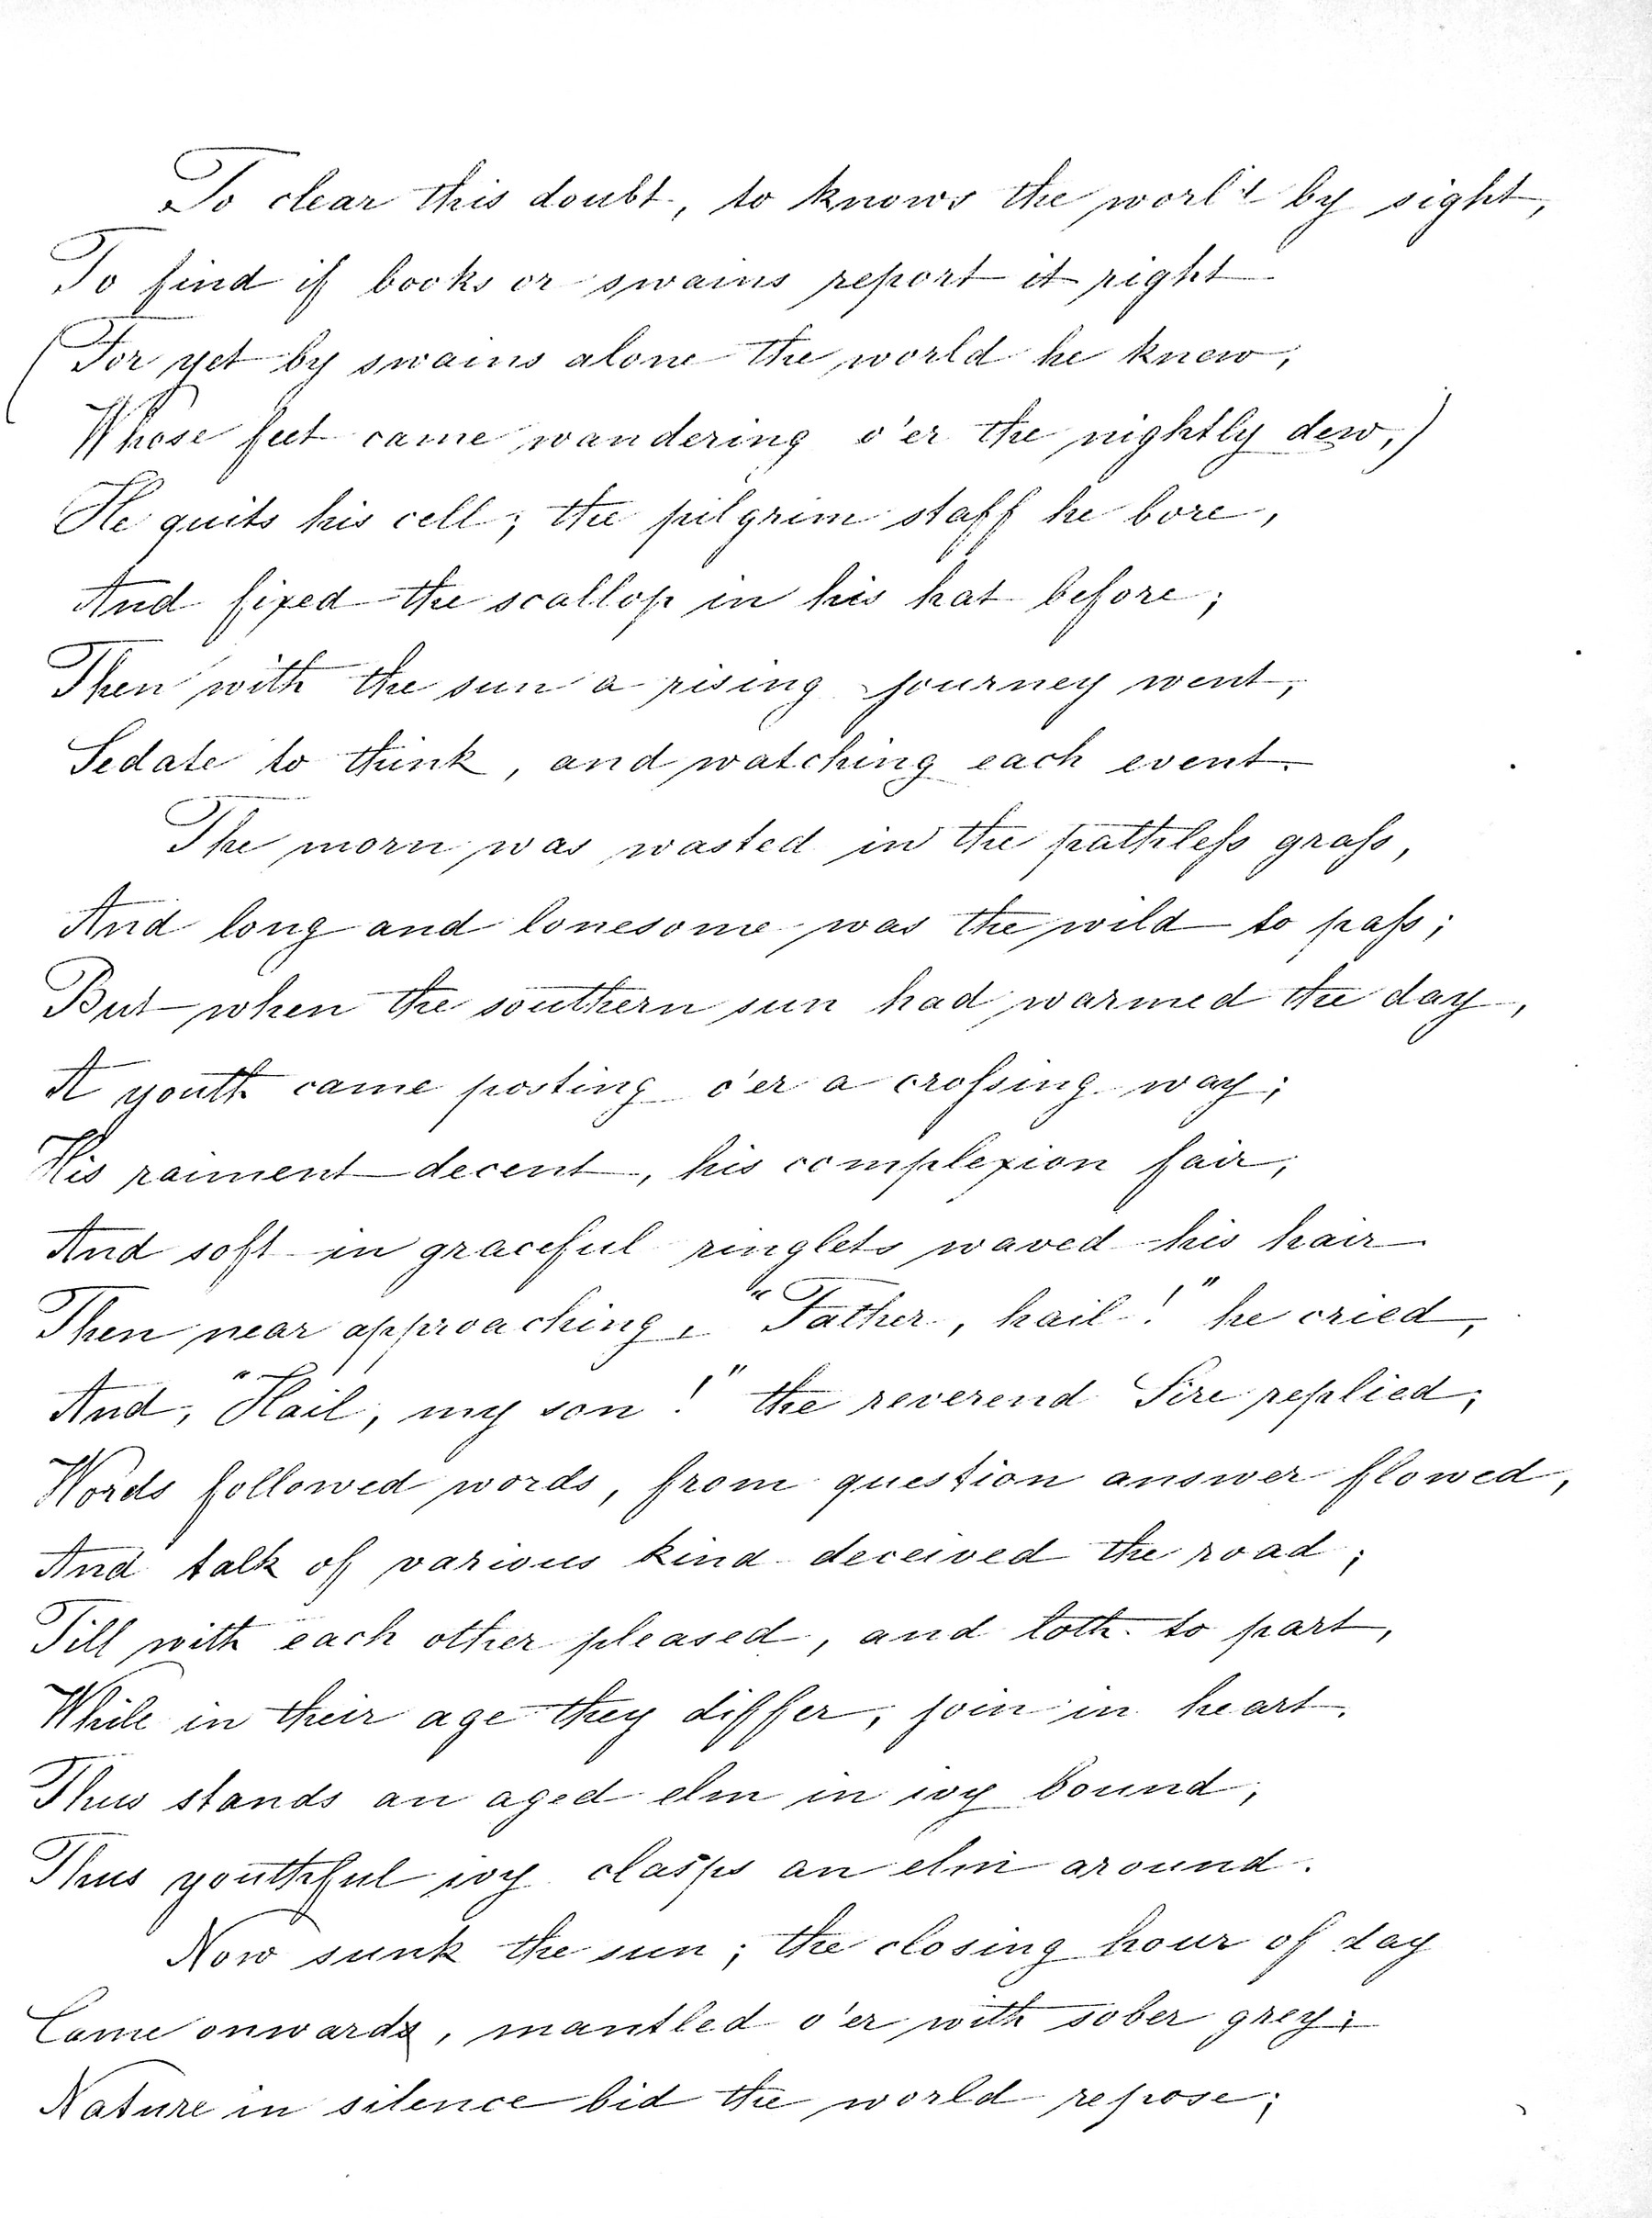 To clear this doubt, to knows the worl't by sight,
To find if books or swains report it right
(For yet by swains alone the world he knew,
Whose feet came wandering o'er the nightly dew,)
He quits his cell; the pilgrim staff he bore,
And fixed the scallop in his hat before;
Then with the sun a rising journey went,
Sedate to think, and watching each event.
The morn was wasted in the pathleſs graſs,
And long and lonesome was the wild to paſs;
But when the southern sun had warmed the day,
A youth came posting o'er a croſsing way;
His raiment decent, his complexion fair,
And soft in graceful ringlets waved his hair
Then near approaching, "Father, hail!" he cried,
And, "Hail, my son!" the reverend Sire replied;
Words followed words, from question answer flowed,
And talk of various kind deceived the road;
Till with each other pleased, and loth to part,
While in their age they differ, join in heart.
Thus stands an aged elm in ivy bound,
Thus youthful ivy clasps an elm around.
Now sunk the sun; the closing hour of day
Came onwards, mantled o'er with sober grey;
Nature in silence bid the world repose;